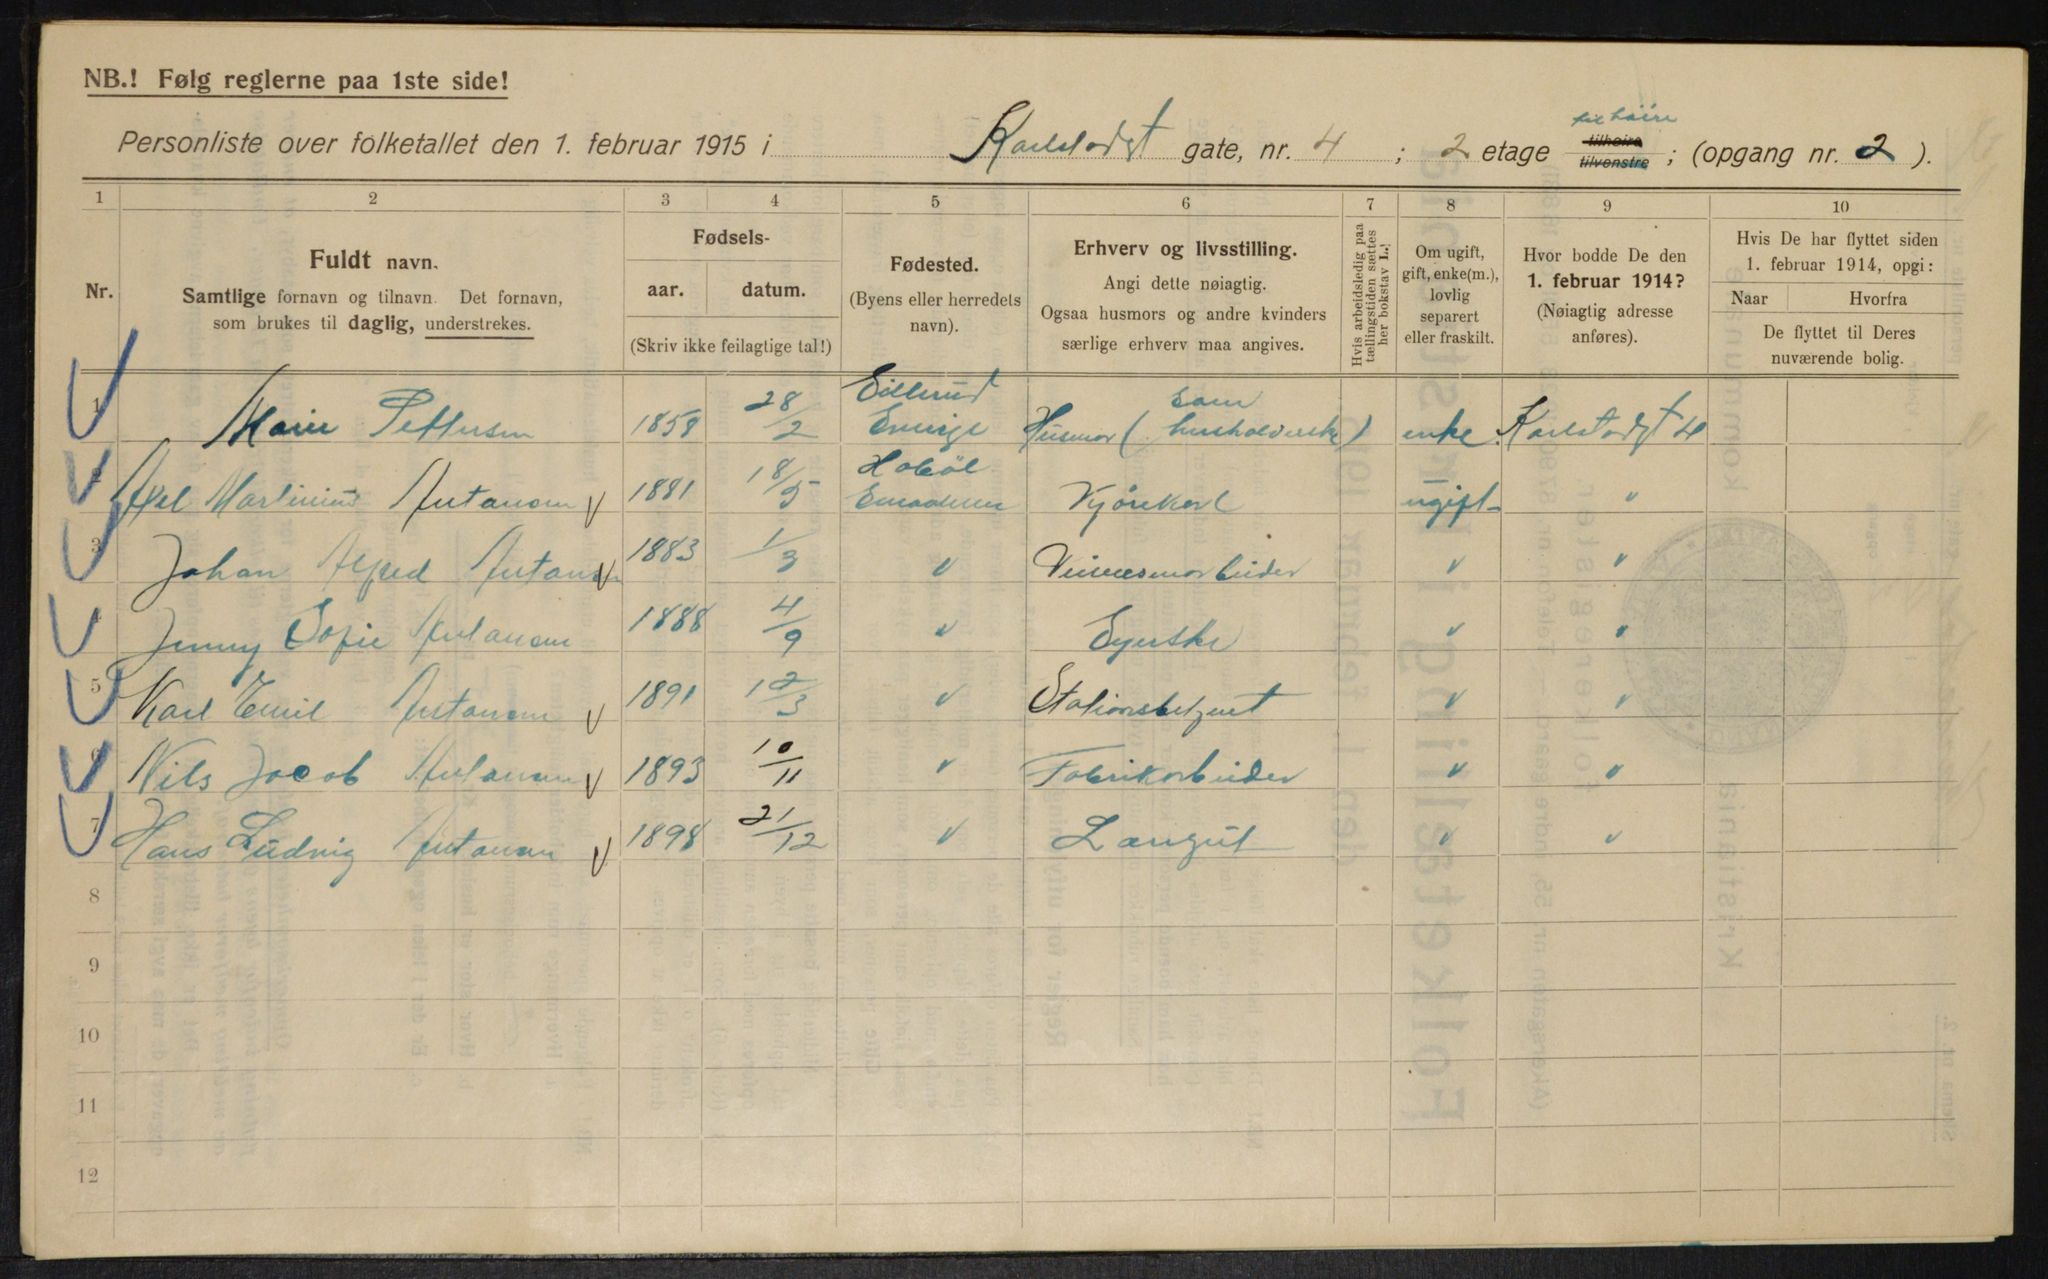 NB.! Følg reglerne paa 1ste side!
til høire
Personliste over folketallet den 1. februar 1915 i Karlstadgt gate, nr. 4 ; 2 etage tilhøire tilvenstre ; (opgang nr. 2 ).
1 2 3 4 5 6 7 8 9 10
Nr.
Fuldt navn.
Samtlige fornavn og tilnavn. Det fornavn,
som brukes til daglig, understrekes.
Fødsels-
aar. datum.
(Skriv ikke feilagtige tal!)
Fødested.
(Byens eller herredets
navn).
Erhverv og livsstilling.
Angi dette nøiagtig.
Ogsaa husmors og andre kvinders
særlige erhverv maa angives.
Hvis arbeidsledig paa
tællingstiden sættes
her bokstav L.!
Om ugift,
gift, enke(m.),
lovlig
separert
eller fraskilt.
Hvor bodde De den
1. februar 1914?
(Nøiagtig adresse
anføres).
Hvis De har flyttet siden
1. februar 1914, opgi:
Naar Hvorfra
De flyttet til Deres
nuværende bolig.
1 Marie Pettersen 1858 28/2 Husmor ( husholderske) enke Karlstadgt 4
2 Axel Martinius Antonsen V 1881 18/5 Hobøl Kjørekarl ugift "
3 Johan Alfred Antonsen V 1883 1/3 " " "
4 Jenny Sofie Antonsen 1888 4/9 " Syerske " "
5 Karl Emil Antonsen V 1891 12/3 " Stationsbetjent " "
6 Nils Jacob Antonsen V 1893 10/11 " Fabrikarbeider " "
7 Hans Ludvig Antonsen V 1898 21/12 " " "
8
9
10
11
12